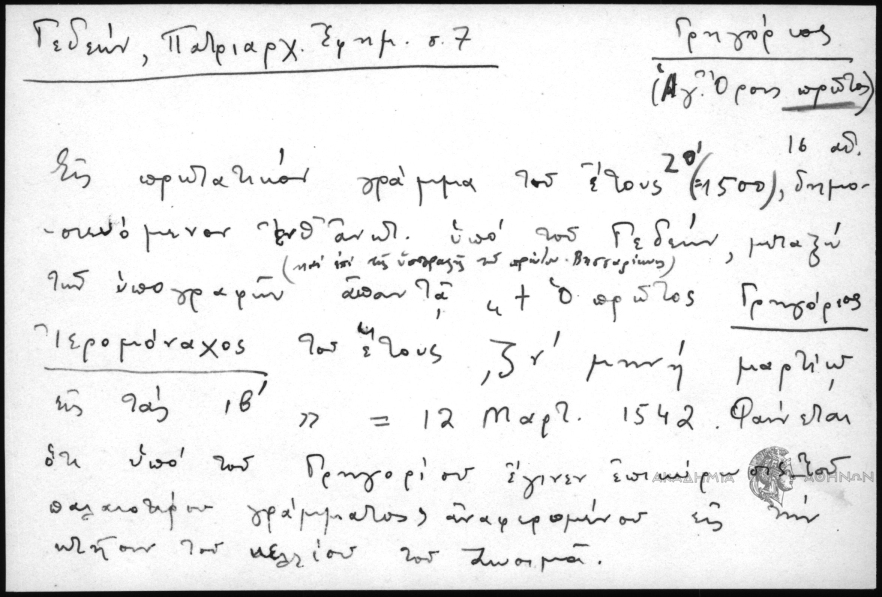 Γεδεών, Πατριαρχ. Ἐφημ. σ. 7
Γρηγόριος
(Ἁγ. Ὄρους πρῶτος)
16 αἰ.
Εἰς πρωτατικόν γράμμα τοῦ ἔτους ζθ' (=1500), δημο-
-σιευόμενον ἐνθ' ἀνωτ. ὑπό τοῦ Γεδεών, μεταξύ
(καί ἐπί τῆς ὑπογραφῆς τοῦ πρώτου Βησσαρίωνος)
τῶν ὑπογραφῶν ἀπαντᾷ „ + Ὁ πρῶτος Γρηγόριος
Ἱερομόναχος τοῦ ἔτους ,ζν' μηνή μαρτίω
εἰς τάς ιβ' » = 12 Μαρτ. 1542. Φαίνεται
ὅτι ὑπό τοῦ Γρηγορίου ἔγινεν ἐπικύρωσις τοῦ
παλαιοτέρου γράμματος, ἀναφερομένου εἰς τήν
κτῆσιν τοῦ κελλίου τοῦ
ΑΚΑΔΗΜΙΑ ΑΘΗΝΩΝ